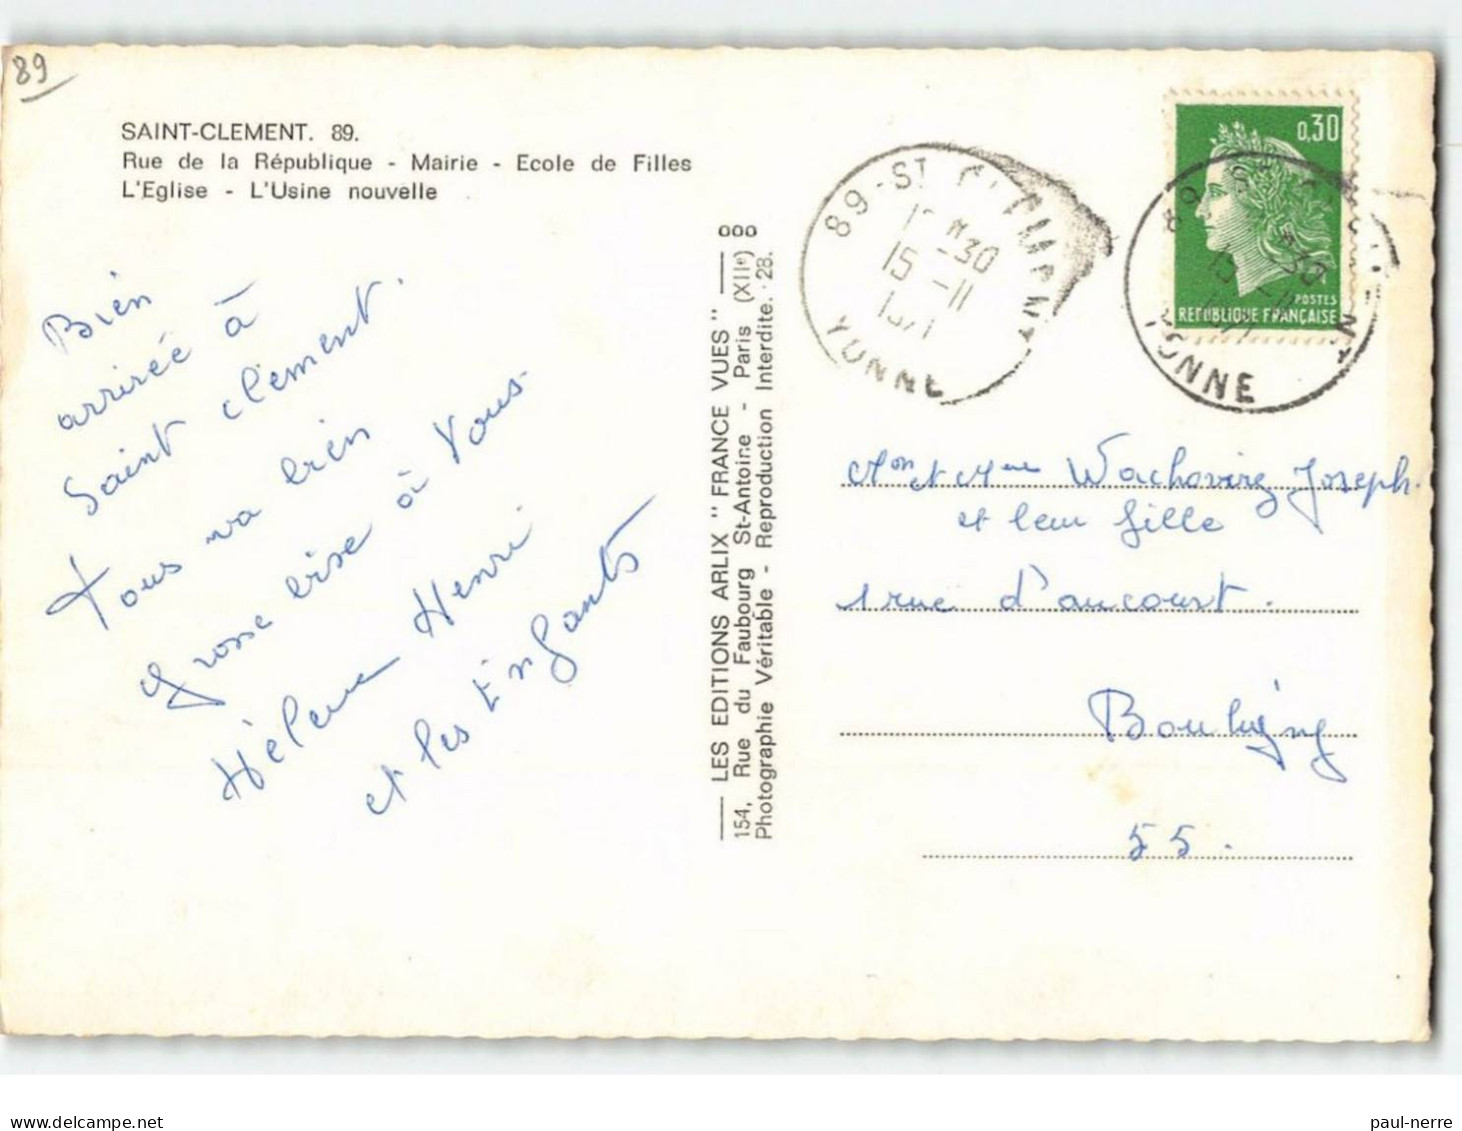 89
SAINT-CLEMENT. 89.
Rue de la République - Mairie - Ecole de Filles
L'Eglise - L'Usine nouvelle
Bien
arrivée à
Saint Clément.
Tous va bien
grosse bise à Vous
Hélène Henri
et les Enfants
ooo
LES EDITIONS ARLIX " FRANCE VUES "
154, Rue du Faubourg St-Antoine - Paris (XIIe)
Photographie Véritable - Reproduction Interdite. 28.
89 - ST CLEMENT
30
15 -11
1971
YONNE
0,30
POSTES
REPUBLIQUE FRANÇAISE
89 ST CLEMENT
30
15 -11
1971
YONNE
Mon et Mme Joseph.
et leur fille
1 rue d'aucourt.
Bouligny
55.
delcampe.net
paul-nerre